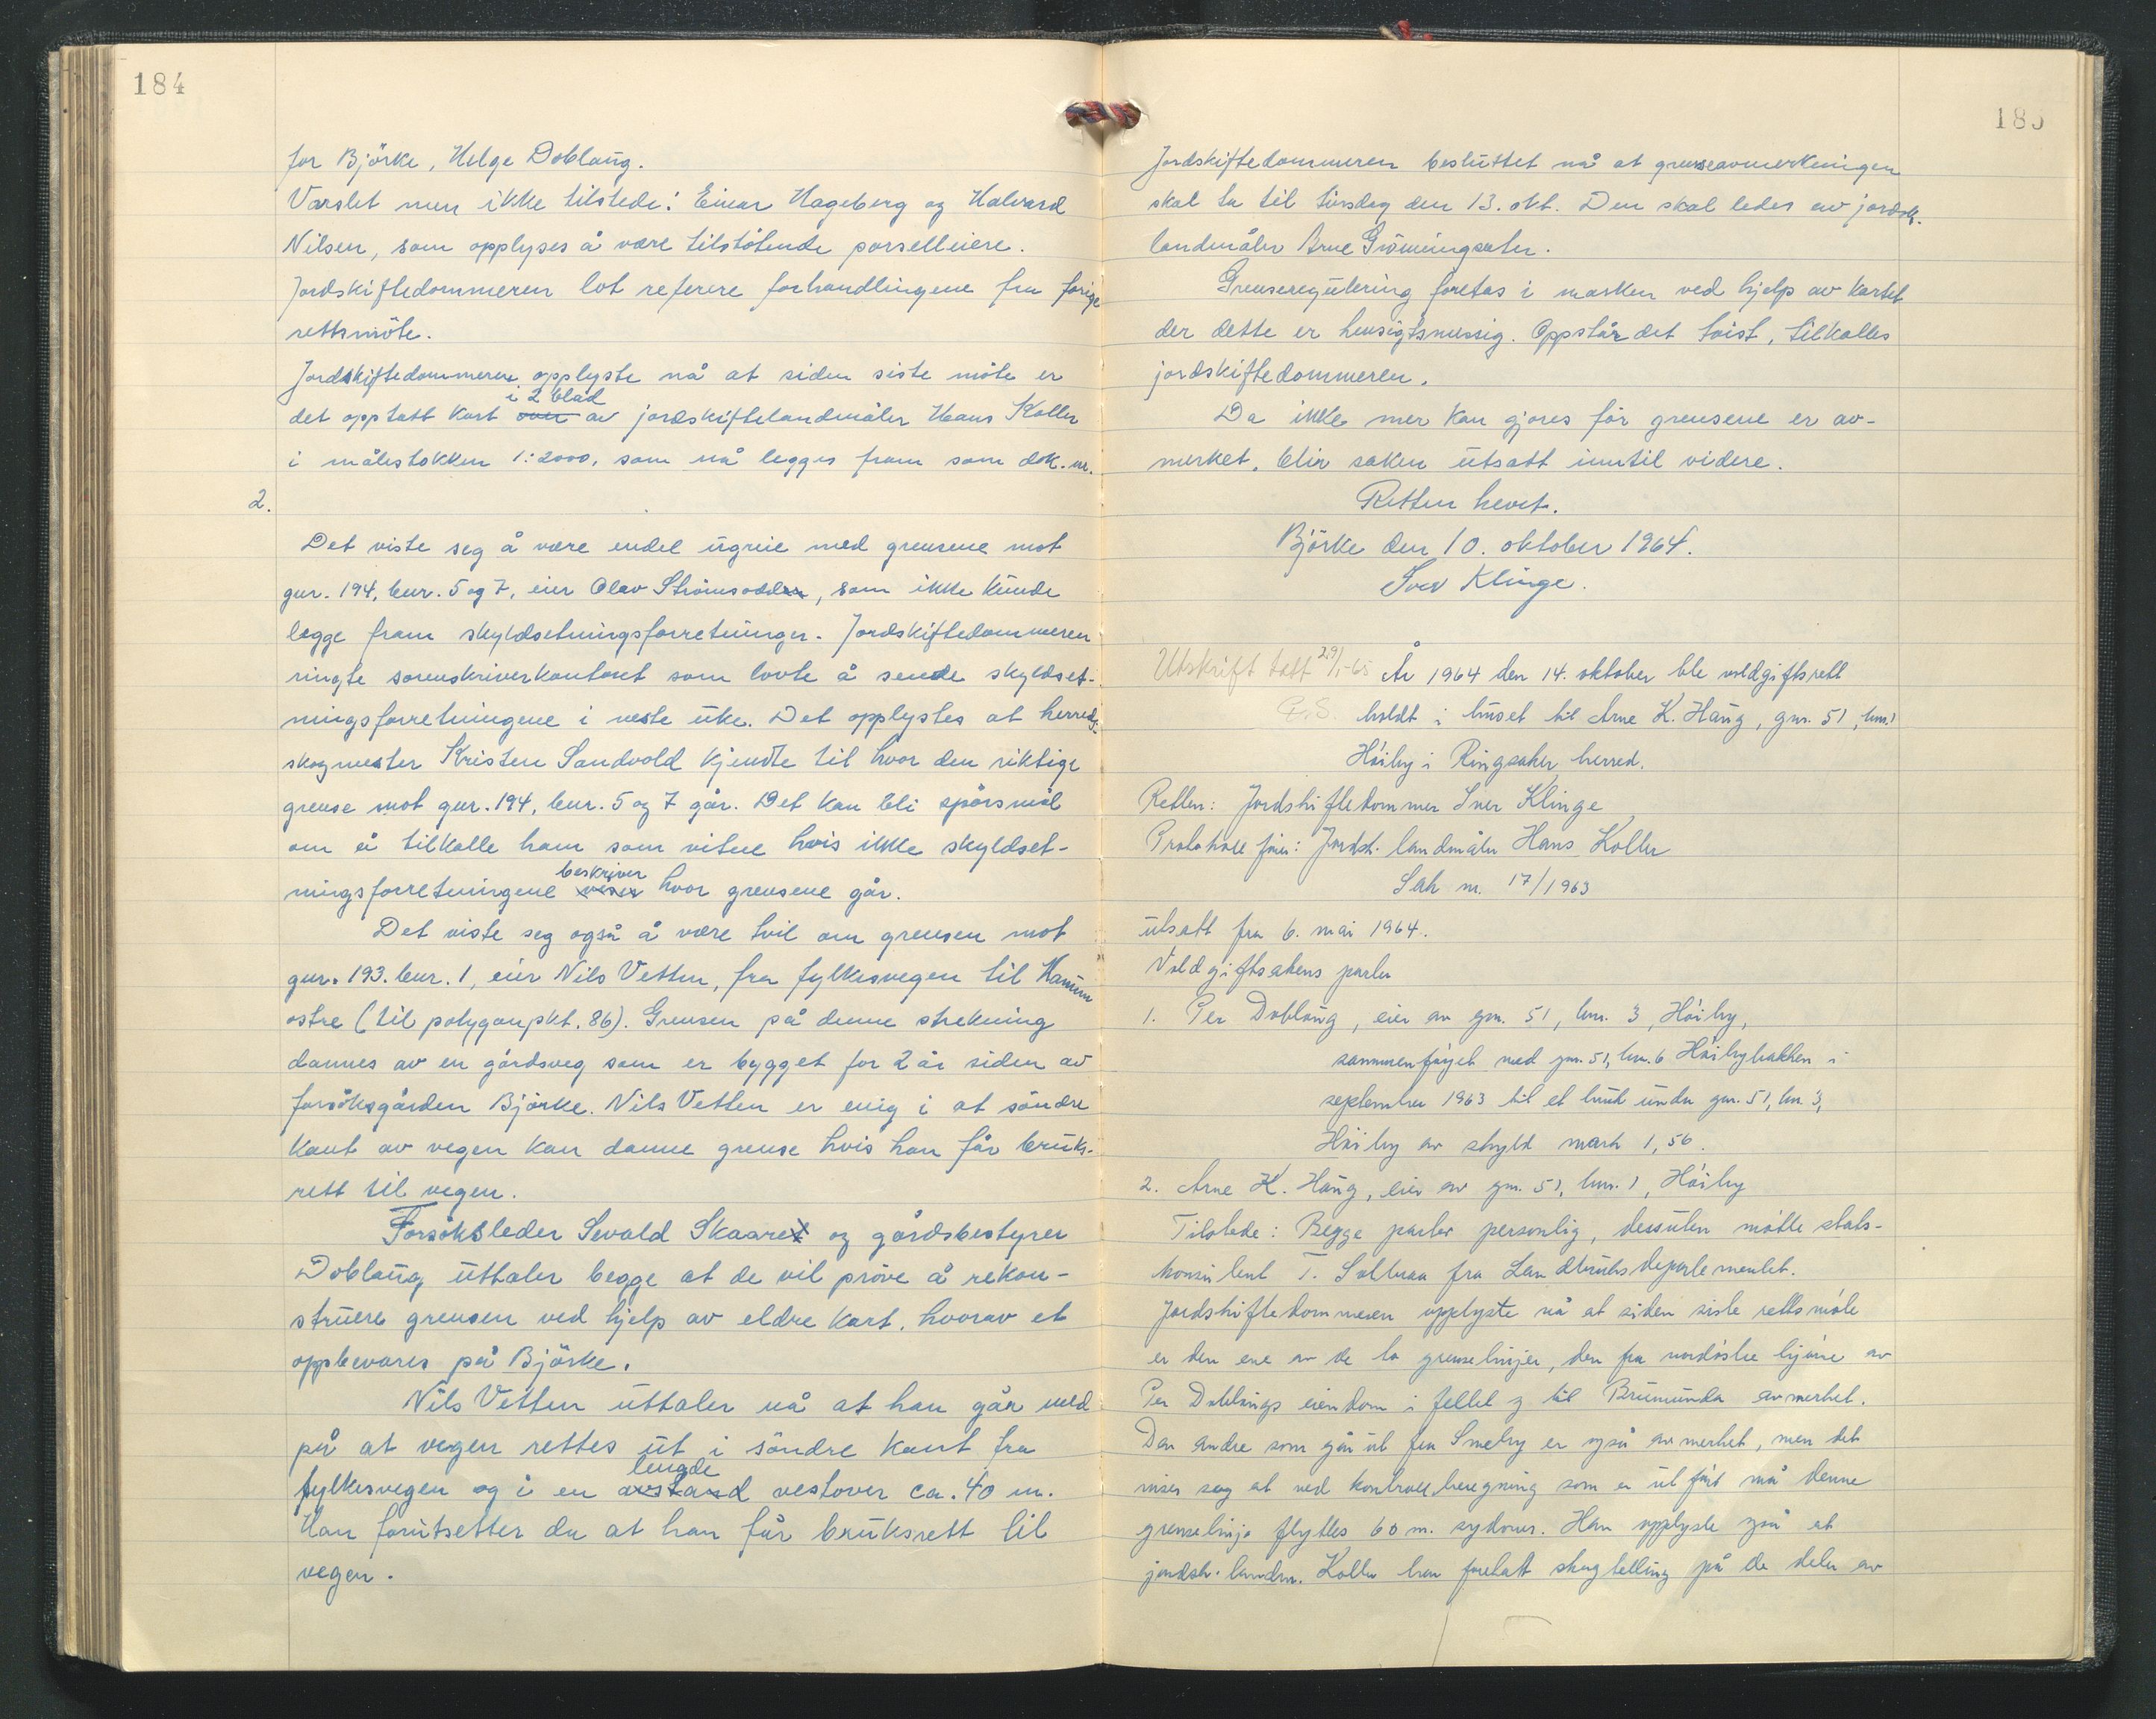 184
for Björke, Helge Doblaug.
Varslet men ikke tilstede: Einar Hageberg og Halvard
Nilsen, som opplyses å være tilstötende parselleiere.
Jordskiftedommeren lot referere forhandlingene fra forige
rettsmöte.
Jordskiftedommeren opplyste nå at siden siste möte er
i 2 blad
det opptatt kart over av jordskiftelandmåler Hans Koller
i målestokken 1:2000, som nå legges fram som dok. nr.
2.
Det viste seg å være endel ugreie med grensene mot
gnr. 194, bnr. 5 og 7, eier Olav Strömsodden, som ikke kunde
legge fram skyldsetningsforretninger. Jordskiftedommeren
ringte sorenskriverkontoret som lovte å sende skyldset-
ningsforretningene i neste uke. Det opplystes at herreds-
skogmester Kristen Sandvold kjendte til hvor den riktige
grense mot gnr. 194, bnr. 5 og 7 går. Det kan bli spörsmål
om å tilkalle ham som vitne hvis ikke skyldset-
beskriver
ningsforretningene viser hvor grensene går.
Det viste seg også å være tvil om grensen mot
gnr. 193. bnr. 1, eier Nils Vetten, fra fylkesvegen til Hamm
östre (til polygonpkt. 86). Grensen på denne strekning
dannes av en gårdsveg som er bygget for 2 år siden av
forsöksgården Björke. Nils Vetten er enig i at söndre
kant av vegen kan danne grense hvis han får bruks-
rett til vegen.
Forsöksleder Sevald Skaare og gårdsbestyrer
Doblaug uttaler begge at de vil pröve å rekon-
struere grensen ved hjelp av eldre kart, hvorav et
oppbevares på Björke.
Nils Vetten uttaler nå at han går med
på at vegen rettes ut i söndre kant fra
lengde
fylkesvegen og i en avstand vestover ca. 40 m.
Han forutsetter da at han får bruksrett til
vegen.
185
Jordskiftedommeren besluttet nå at grenseavmerkningen
skal ta til tirsdag den 13. okt. Den skal ledes av jordsk.
landmåler Arne Grönningsæter.
Grenseregulering foretas i marken ved hjelp av kartet
der dette er hensigtsmessig. Oppstår det tvist, tilkalles
jordskiftedommeren.
Da ikke mer kan gjøres för grensene er av-
merket, blir saken utsatt inntil videre.
Retten hevet.
Björke den 10. oktober 1964.
Sver Klinge.
Utskrift tatt 29/1-65
År 1964 den 14. oktober ble voldgiftsrett
G.S.
holdt i huset til Arne K. Haug, gnr. 51, bnr. 1
Höiby i Ringsaker herred.
Retten: Jordskiftedommer Sver Klinge
Protokoll förer: Jordsk. landmåler Hans Koller
Sak nr. 17/1963
utsatt fra 6. mai 1964.
Voldgiftsakens parter
1. Per Doblaug, eier av gnr. 51, bnr. 3, Höiby,
sammenföyet med gnr. 51, bnr. 6 Höibybakken i
september 1963 til et bruk under gnr. 51, bnr. 3,
Höiby av skyld mark 1,56.
2. Arne K. Haug, eier av gnr. 51, bnr. 1, Höiby
Tilstede: Begge parter personlig, dessuten mötte stats-
konsulent T. fra Landbruksdepartementet.
Jordskiftedommeren opplyste nå at siden siste rettsmöte
er den ene av de to grenselinjer, den fra nordöstre hjörne av
Per Doblaugs eiendom i fellet og til Brumunda avmerket.
Den andre som går ut fra Smeby er også avmerket, men det
viser seg at ved kontrollberegning som er utfört må denne
grenselinje flyttes 60 m. sydover. Han opplyste også at
jordsk. landm. Koller har foretatt skogtelling på de deler av